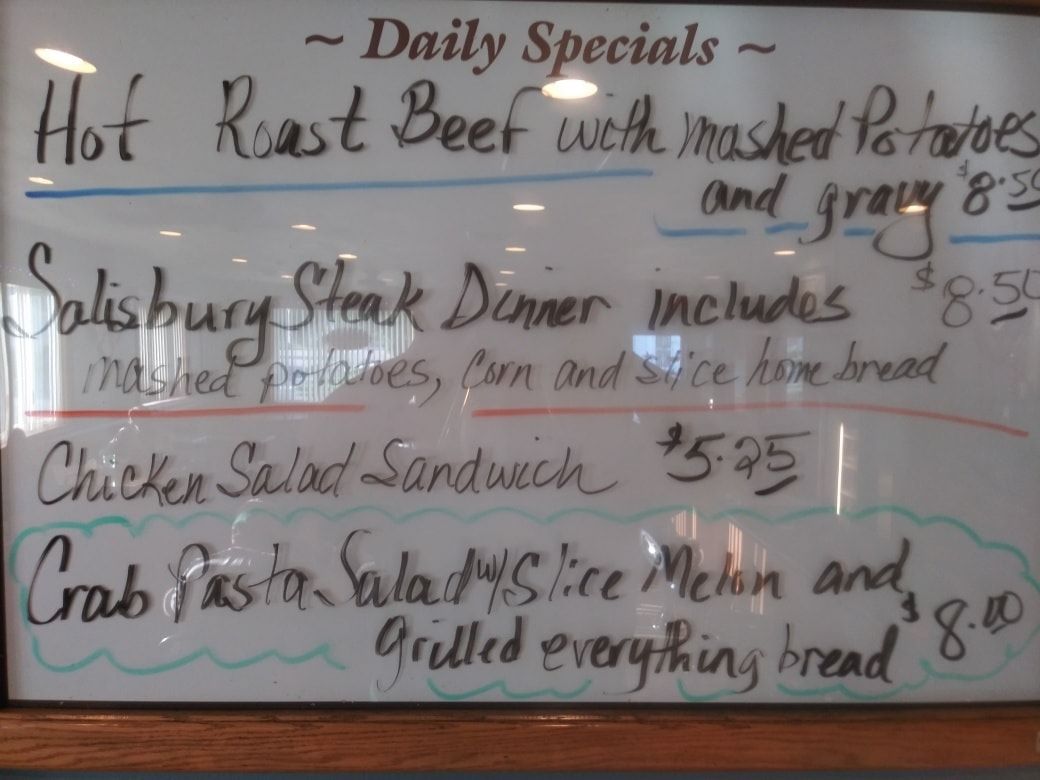 ~ Daily Specials ~
Hot Roast Beef with mashed Potatoes
and gravy $8.50
Salisbury Steak Dinner includes $8.50
mashed potatoes, Corn and slice home bread
Chicken Salad Sandwich $5.25
Crab Pasta Salad w/Slice Melon and
grilled everything bread $8.00